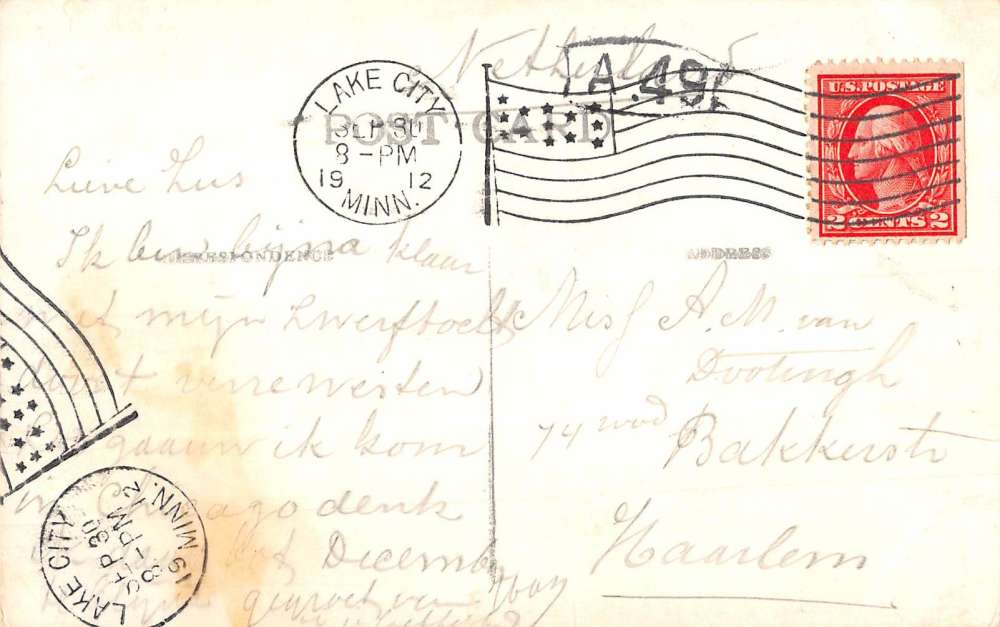 Netherland
A.49
POST CARD
LAKE CITY
SEP 30
8-PM
19 12
MINN.
U.S. POSTAGE
2 CENTS 2
CORRESPONDENCE
ADDRESS
Lieve Zus
Ik ben bijna klaar
met mijn zwerftocht
door 't verre westen
gaauw ik kom
in Chicago denk
December
gegroet van
Miss A. M. van
Dootingh
74 rood Bakkerstr
Haarlem
LAKE CITY
SEP 30
8-PM
19 12
MINN.